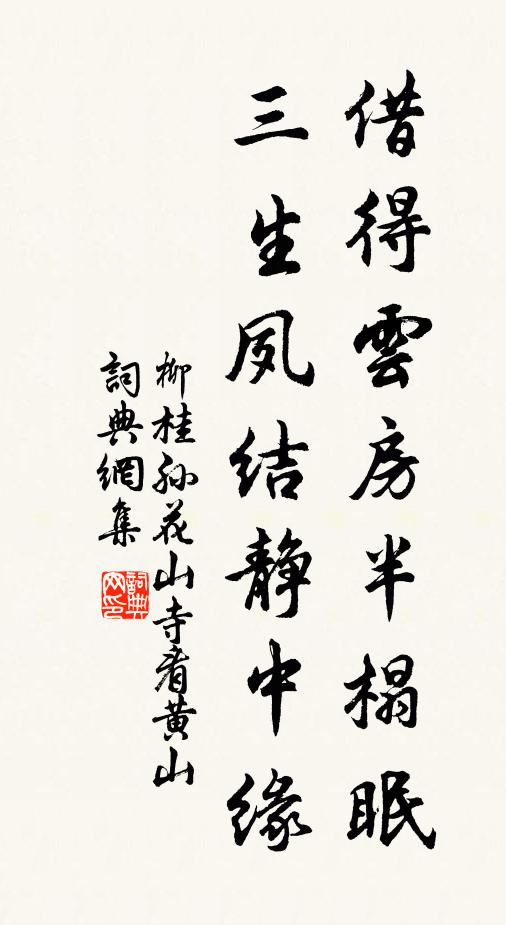 借得雲房半榻眠
三生夙結静中緣
柳桂孙花山寺看黄山
詞典網集
詞典网印